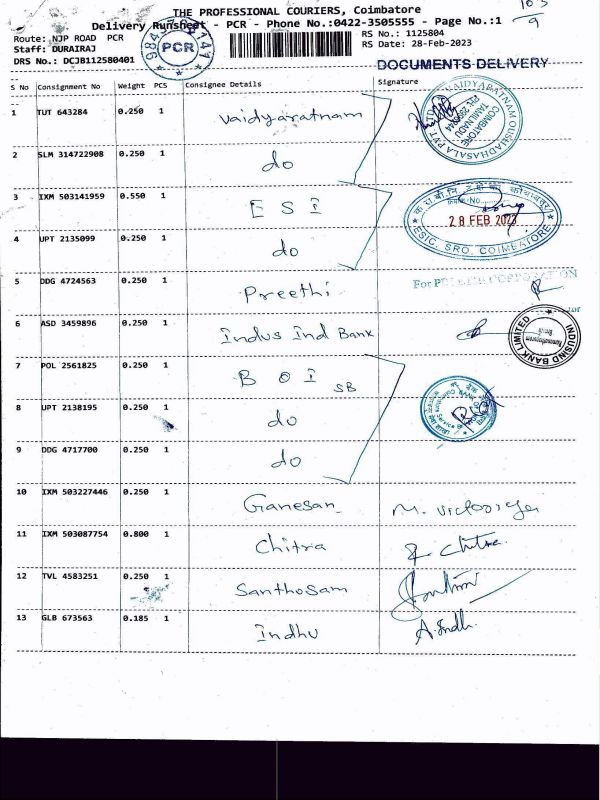 THE PROFESSIONAL COURIERS, Coimbatore
Delivery Runsheet - PCR - Phone No.:0422-3505555 - Page No.:1
Route: NJP ROAD PCR
Staff: DURAIRAJ
DRS No.: DCJB112580401
PCR
RS No.: 1125804
RS Date: 28-Feb-2023
DOCUMENTS DELIVERY
S No Consignment No Weight PCS Consignee Details Signature
1 TUT 643284 0.250 1 Vaidyaratnam
VAIDYARATNAM OUSHADHASALA PVT LTD
COIMBATORE
TAMILNADU
2 SLM 314722908 0.250 1 do
3 IXM 503141959 0.550 1 E S I
28 FEB 2023
ESIC, SRO, COIMBATORE
4 UPT 2135099 0.250 1 do
5 DDG 4724563 0.250 1 Preethi
For CORPORATION
6 ASD 3459896 0.250 1 Indus Ind Bank
INDUSIND BANK LIMITED
7 POL 2561825 0.250 1 B O I SB
8 UPT 2138195 0.250 1 do
9 DDG 4717700 0.250 1 do
10 IXM 503227446 0.250 1 Ganesan
11 IXM 503087754 0.800 1 Chitra R. Chitra
12 TVL 4583251 0.250 1 Santhosam
13 GLB 673563 0.185 1 Indhu A. Indh